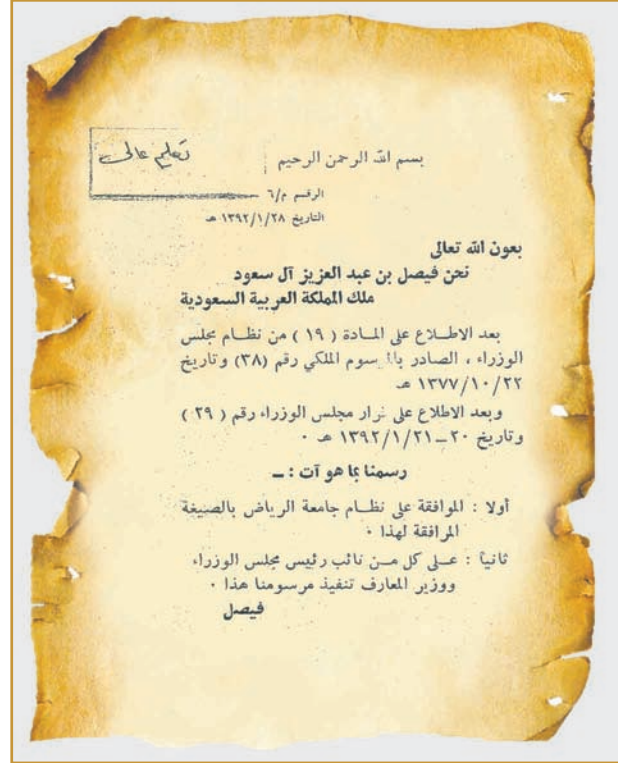 تعليم عالى
بسم الله الرحمن الرحيم
الرقم م/٦
التاريخ ١٣٩٢/١/٢٨ هـ
بعون الله تعالى
نحن فيصل بن عبد العزيز آل سعود
ملك المملكة العربية السعودية
بعد الاطلاع على المادة ( ١٩ ) من نظام مجلس
الوزراء ، الصادر بالمرسوم الملكي رقم (٣٨) وتاريخ
١٣٧٧/١٠/٢٢ هـ
وبعد الاطلاع على قرار مجلس الوزراء رقم ( ٢٩ )
وتاريخ ٢٠ــ١٣٩٢/١/٢١ هـ ٠
رسمنا بما هو آت : ــ
أولا : الموافقة على نظام جامعة الرياض بالصيغة
المرافقة لهذا ٠
ثانياً : على كل من نائب رئيس مجلس الوزراء
ووزير المعارف تنفيذ مرسومنا هذا ٠
فيصل